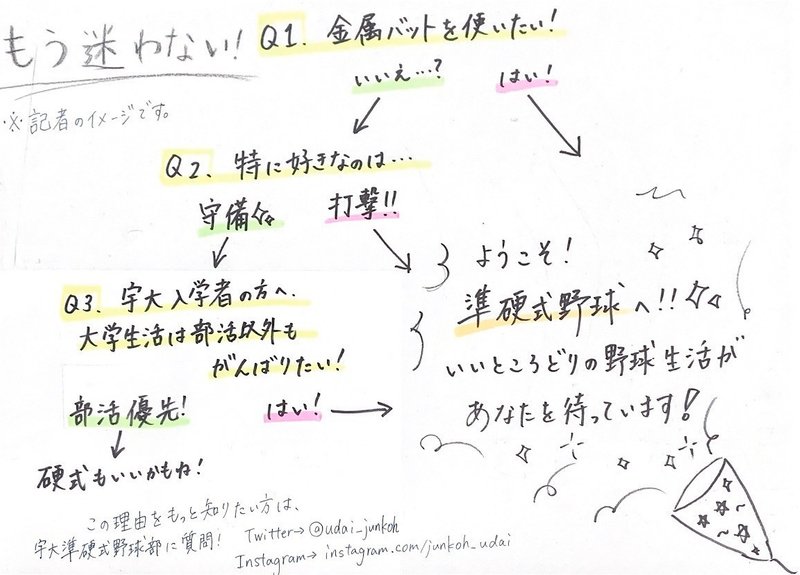 もう迷わない!
※記者のイメージです。
Q1. 金属バットを使いたい!
いいえ…?
はい!
Q2. 特に好きなのは…
守備
打撃!!
Q3. 宇大入学者の方へ.
大学生活は部活以外も
がんばりたい!
部活優先!
はい!
硬式もいいかもね!
ようこそ!
準硬式野球へ!!
いいところどりの野球生活が
あなたを待っています!
この理由をもっと知りたい方は、
宇大準硬式野球部に質問!
Twitter→@udai_junkoh
Instagram→instagram.com/junkoh_udai